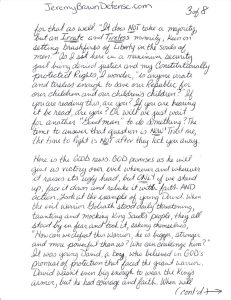 JeremyBrownDefense.com
3 of 8
for that as well. "It does NOT take a majority,
but an Irate and Tireless minority, keen on
setting brushfires of Liberty in the souls of
men." As I sit here in a maximum security
jail being denied justice and my Constitutionally
protected Rights, I wonder, is anyone irate
and tireless enough to save our Republic for
our children and our children's children? If
you are reading this, are you? If you are hearing
it be read, are you? Or will we just wait
for another "Good men" to do something? The
time to answer that question is NOW! Trust me,
the time to fight is NOT after they take you away.
Here is the GOOD news. GOD promises us he will
give us victory over evil whenever and wherever
it raises its ugly head, but ONLY if we stand
up, face it down and rebuke it with faith AND
action. Look at the example of young David. When
the evil warrior Goliath stood daily threatening,
taunting and mocking King Saul's people, they all
stood by in fear and took it, asking themselves,
"How can we defeat this warrior, he is bigger, stronger
and more powerful than us? Who can challenge him?"
It was young David, a boy, who believed in GOD's
promise of protection that faced the giant warrior.
David wasn't even big enough to wear the King's
armor, but he had courage and faith. When will
(cont'd)→